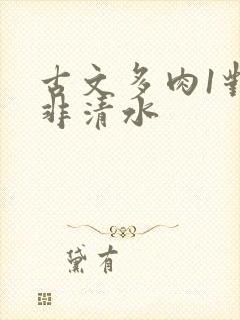 古文多肉1對
非清水
黛有